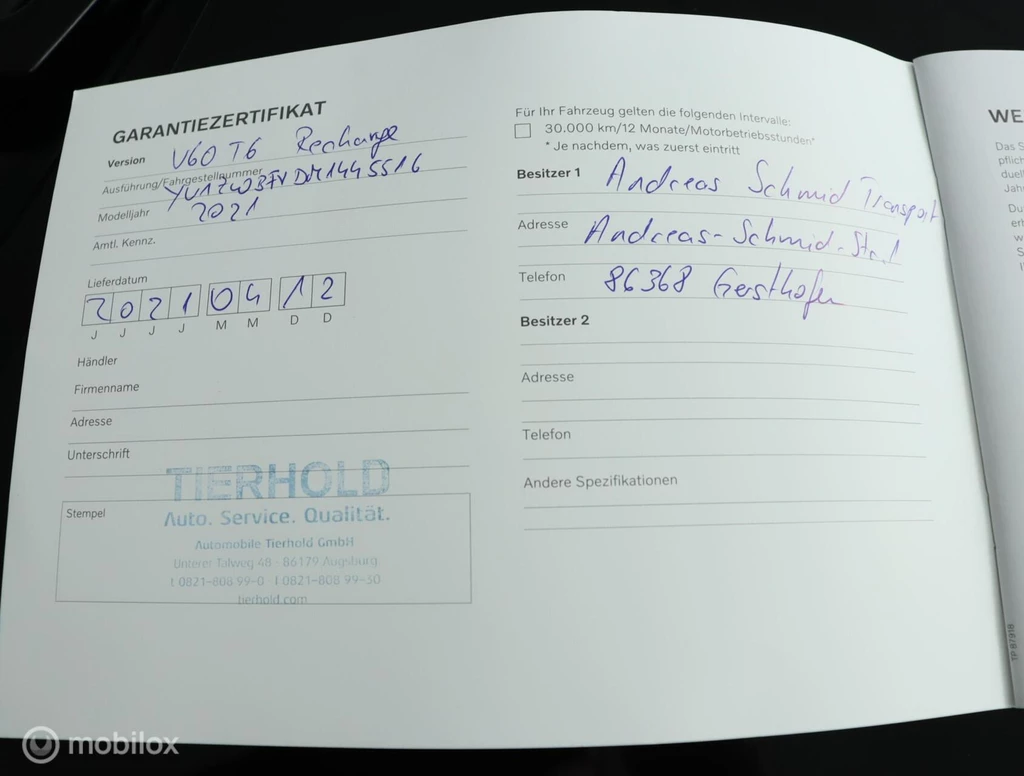 GARANTIEZERTIFIKAT
Version V60 T6 Recharge
Ausführung/Fahrgestellnummer YV1ZW03TVDM1445516
Modelljahr 2021
Amtl. Kennz.
Lieferdatum
2 0 2 1 0 4 1 2
J J J J M M D D
Händler
Firmenname
Adresse
Unterschrift
Stempel
TIERHOLD
Auto. Service. Qualität.
Automobile Tierhold GmbH
Unterer Talweg 48 - 86179 Augsburg
t 0821-808 99-0 f 0821-808 99-30
tierhold.com
Für Ihr Fahrzeug gelten die folgenden Intervalle:
30.000 km/12 Monate/Motorbetriebsstunden*
* Je nachdem, was zuerst eintritt
Besitzer 1 Andreas Schmid Transport
Adresse Andreas-Schmid-Str. 1
Telefon 86368 Gersthofen
Besitzer 2
Adresse
Telefon
Andere Spezifikationen
WE
Das S
pflich
duel
Jah
Du
erl
TP 87918
mobilox